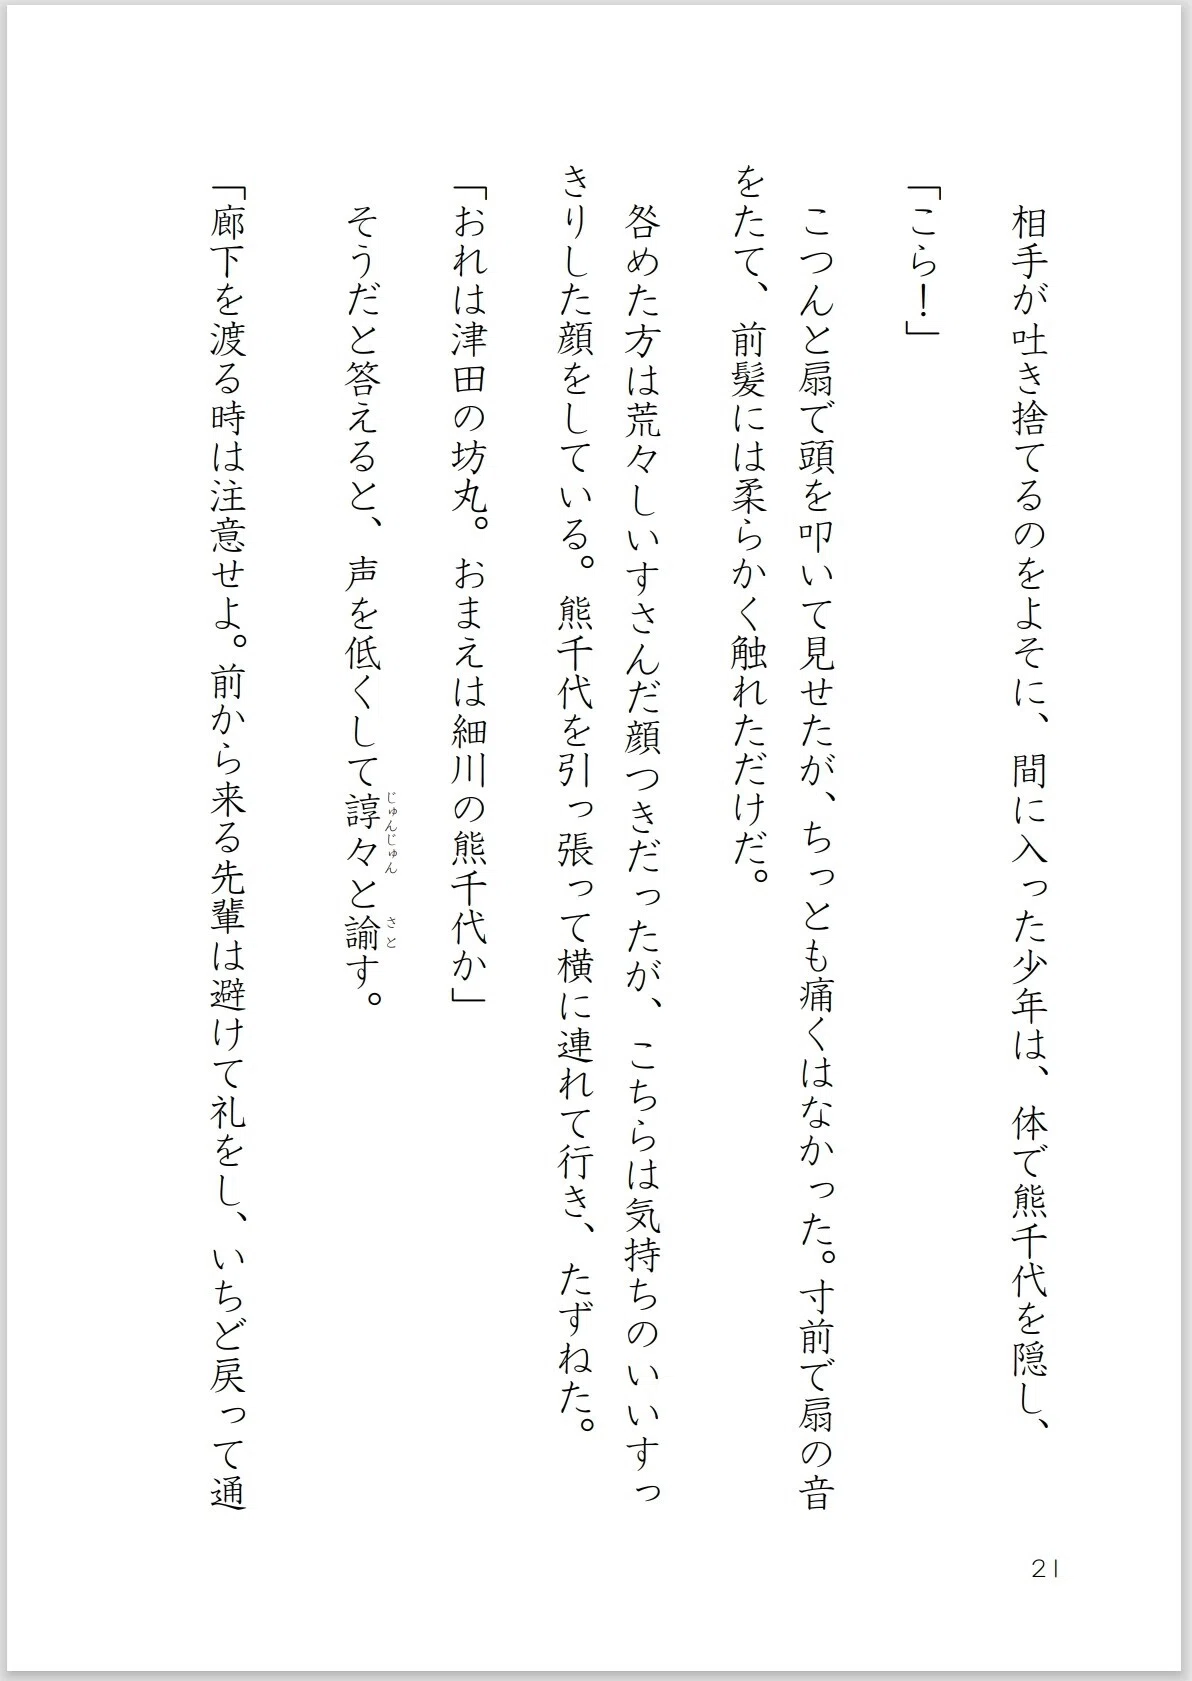 相手が吐き捨てるのをよそに、間に入った少年は、体で熊千代を隠し、
「こら！」
こつんと扇で頭を叩いて見せたが、ちっとも痛くはなかった。寸前で扇の音
をたて、前髪には柔らかく触れただけだ。
咎めた方は荒々しいすさんだ顔つきだったが、こちらは気持ちのいいすっ
きりした顔をしている。熊千代を引っ張って横に連れて行き、たずねた。
「おれは津田の坊丸。おまえは細川の熊千代か」
そうだと答えると、声を低くして諄々と諭す。
じゅんじゅん
さと
「廊下を渡る時は注意せよ。前から来る先輩は避けて礼をし、いちど戻って通
21